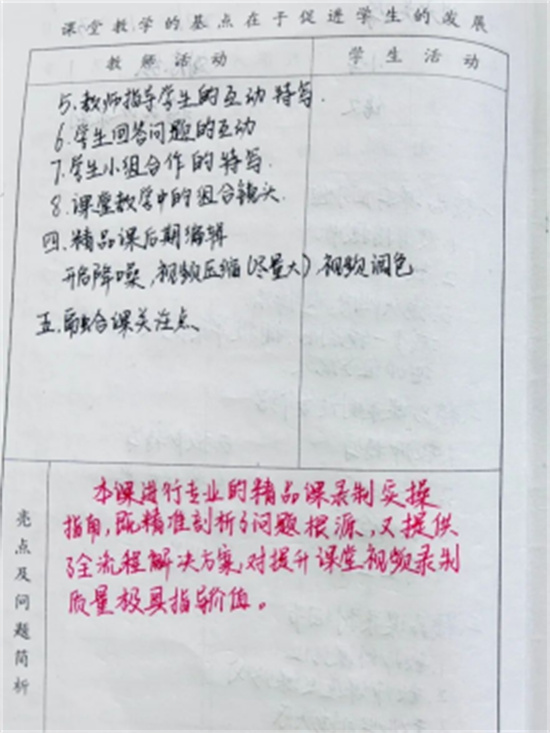 课堂教学的基点在于促进学生的发展
教师活动
学生活动
5.教师指导学生的互动特写.
6.学生回答问题的互动
7.学生小组合作的特写.
8.课堂教学中的组合镜头.
四.精品课后期编辑
开启降噪,视频压缩(尽量大).视频调色
五.融合课关注点、
亮点及问题简析
本课进行专业的精品课录制实操
指南,既精准剖析了问题根源,又提供
了全流程解决方案,对提升课堂视频录制
质量极具指导价值。